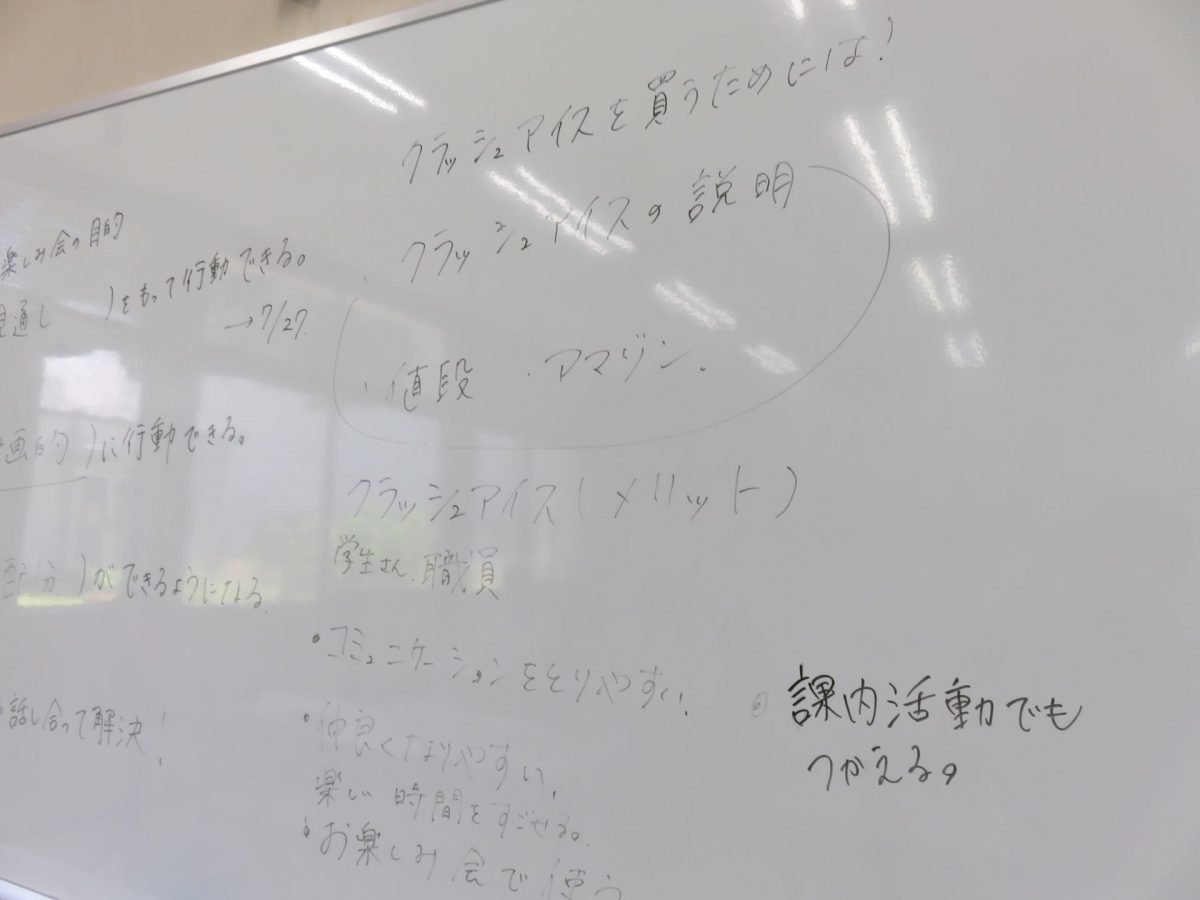 クラッシュアイスを買うためには!
クラッシュアイスの説明
・値段 ・アマゾン.
クラッシュアイス(メリット)
学生さん、職員
・コミュニケーションをとりやすい.
・仲良くなりやすい.
楽しい時間をすごせる。
・お楽しみ会で使う
課内活動でも
つかえる。
楽しみ会の目的
見通し )をもって行動できる。
→7/27
画的 )に行動できる。
配分 )ができるようになる.
話し合って解決!